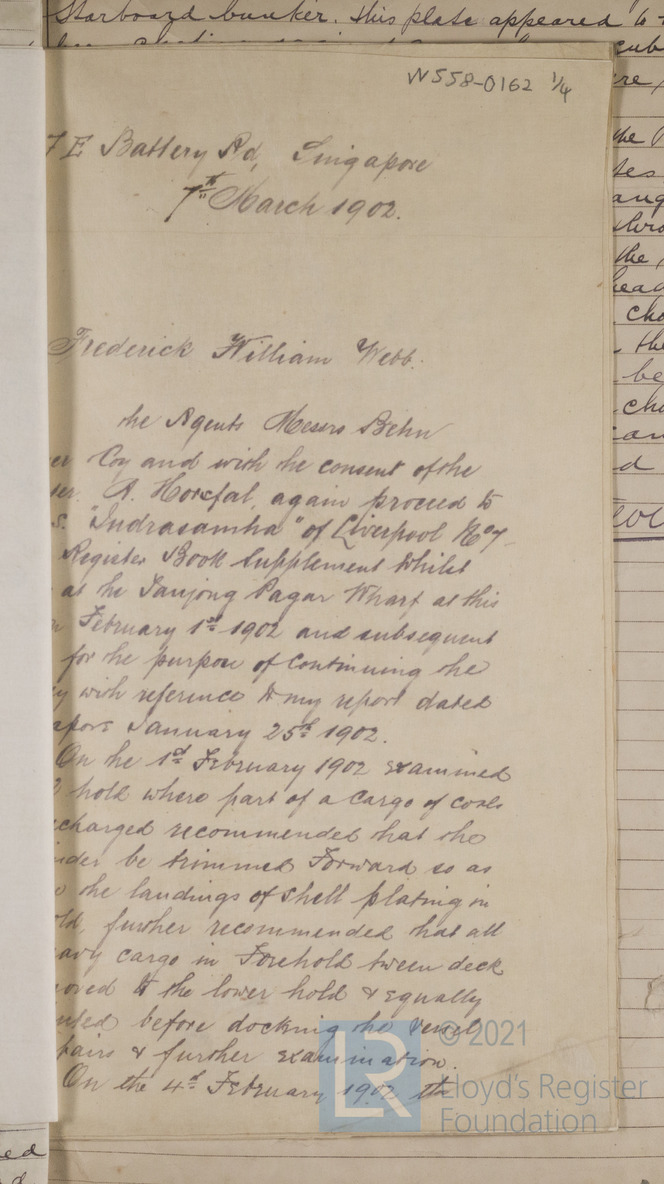 Starboard bunker. This plate appeared to
W558-0162 1/4
7 E Battery Rd, Singapore
7th March 1902.
Frederick William Webb.
the Agents Messrs Behn
er Coy and with the consent of the
ter. A. Horsfal, again proceed to
s. "Indrasamha" of Liverpool No 7
Register Book Supplement whilst
at the Tanjong Pagar Wharf at this
n February 1st 1902 and subsequent
for the purpose of Continuing the
y with reference to my report dated
apore January 25th 1902.
On the 1st February 1902 Examined
hold where part of a Cargo of coals
charged recommended that the
nder be trimmed Forward so as
the landings of Shell plating in
old, further recommended that all
avy cargo in Forehold tween deck
oved to the lower hold & Equally
uted before docking the Vessel
pairs & further Examination.
On the 4th February 1902 the
cub
re,
the
tes
ang
thro
the
head
cha
the
be
cha
can
d
ed
d.
LR
© 2021
Lloyd's Register
Foundation